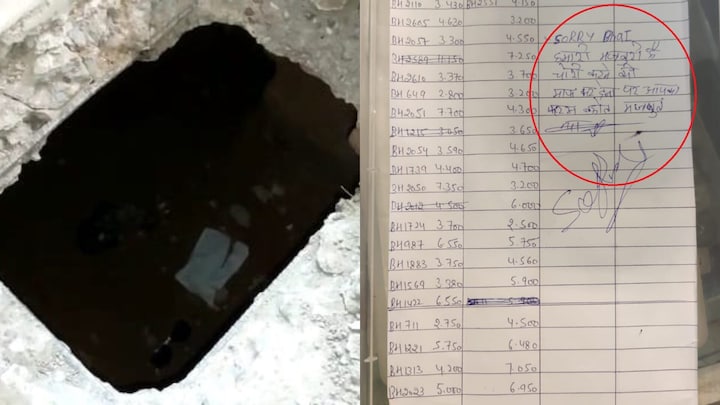 BH2110 3.430 BH2551 4.150
BH2605 4.630 3.200
BH2057 3.300 4.550 SORRY BHAI
11.750 7.250 हमारी मजबूरी है
BH2610 3.370 3.700 चोरी करने की
BH649 2.800 3.200 माफ करना पर आपका
BH2051 7.700 4.300 मजबुत
BH1215 3.050 3.650 था
BH2054 3.590 4.650
BH1739 4.400 4.700
BH2050 7.350 3.200
4.500 6.000
BH1724 3.700 2.500
BH987 6.550 5.750
BH1883 3.750 4.560
BH1569 3.380 5.900
BH1422 6.550
BH711 2.750 4.500
BH1221 5.750 6.480
BH1313 4.200 7.050
BH2023 5.000 6.950
Sorry